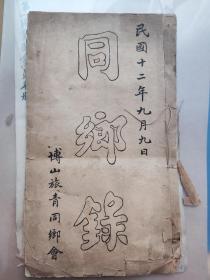 民國十二年九月九日
同鄉錄
博山旅青同鄉會